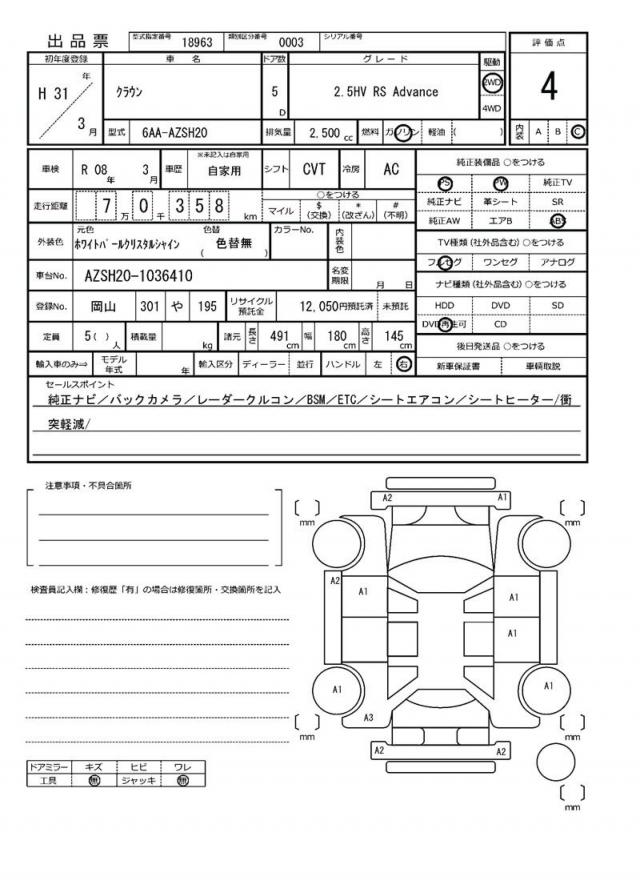 出品票 型式指定番号 18963 類別区分番号 0003 シリアル番号
評価点
4
内装 A B C
初年度登録 車名 ドア数 グレード 駆動
H 31 年 3 月
クラウン 5 D 2.5HV RS Advance 2WD 4WD
型式 6AA-AZSH20 排気量 2,500 cc 燃料 ガソリン 軽油 ( )
車検 R 08 年 3 月 車歴 ※未記入は自家用 自家用 シフト CVT 冷房 AC
走行距離 7 万 0 千 3 5 8 km
○をつける
マイル $ (交換) * (改ざん) # (不明)
外装色 元色 ホワイトパールクリスタルシャイン 色替 ( 色替無 ) カラーNo. 内装色
車台No. AZSH20-1036410 名変期限 月 日
登録No. 岡山 301 や 195 リサイクル預託金 12,050円預託済 未預託
定員 5( ) 人 積載量 kg 諸元 長さ 491 cm 幅 180 cm 高さ 145 cm
輸入車のみ⇒ モデル年式 年 輸入区分 ディーラー 並行 ハンドル 左 右
純正装備品 ○をつける
PS PW 純正TV
純正ナビ 革シート SR
純正AW エアB ABS
TV種類(社外品含む) ○をつける
フルセグ ワンセグ アナログ
ナビ種類(社外品含む) ○をつける
HDD DVD SD
DVD再生可 CD
後日発送品 ○をつける
新車保証書 車輌取説
セールスポイント
純正ナビ/バックカメラ/レーダークルコン/BSM/ETC/シートエアコン/シートヒーター/衝
突軽減/
注意事項・不具合箇所
検査員記入欄:修復歴「有」の場合は修復箇所・交換箇所を記入
A2 A1
mm mm
A2 A1 A1
A1
A1 A1
A3
mm mm
A2 A2
mm
ドアミラー キズ ヒビ ワレ
工具 無 ジャッキ 無